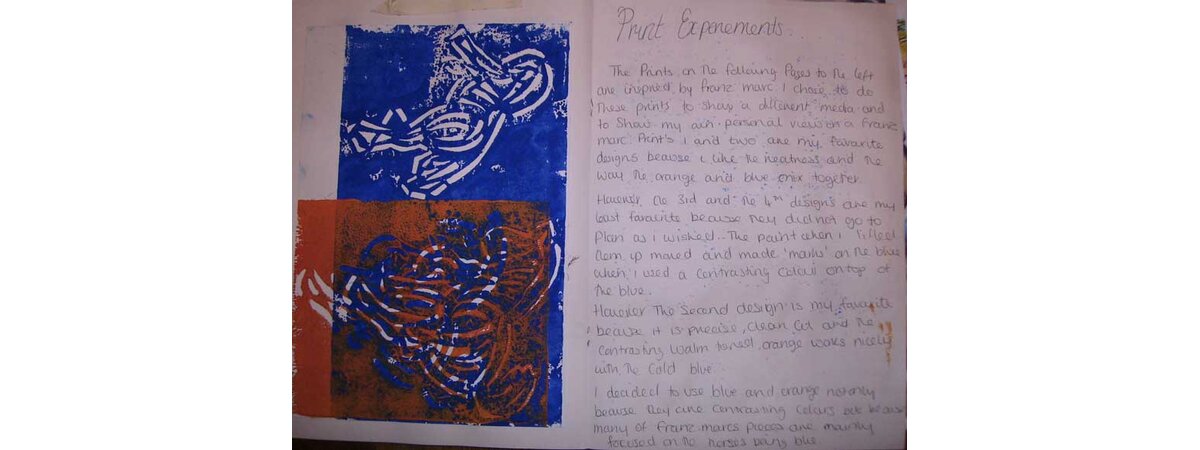 Print Experements
The Prints on the following Pages to the left
are inspired by franz marc. I chose to do
These prints to show a different media and
to show my own personal view on a Franz
marc. Print's 1 and two are my favarite
designs because i like the neatness and the
way the orange and blue mix together.
However the 3rd and the 4th designs are my
least favarite because they did not go to
Plan as i wished. The paint when i lifted
them up moved and made 'marks' on the blue
when i used a contrasting colour on top of
the blue.
However The Second design is my favarite
because it is precise, clean cut and the
contrasting warm toned orange works nicely
with the cold blue.
I decided to use blue and orange not only
because they are contrasting colours but because
many of franz marcs pieces are mainly
focused on the horses being blue.